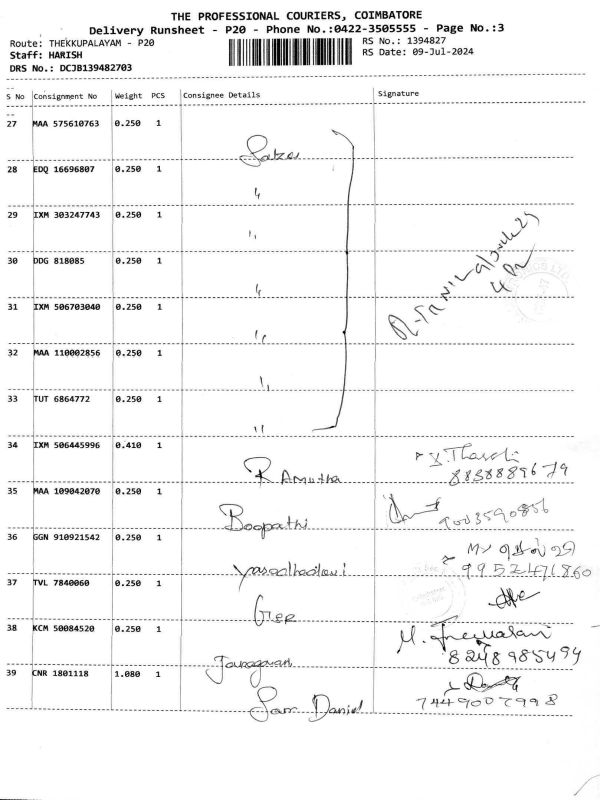 THE PROFESSIONAL COURIERS, COIMBATORE
Delivery Runsheet - P20 - Phone No.:0422-3505555 - Page No.:3
Route: THEKKUPALAYAM - P20
RS No.: 1394827
Staff: HARISH
RS Date: 09-Jul-2024
DRS No.: DCJB139482703
S No Consignment No Weight PCS Consignee Details Signature
27 MAA 575610763 0.250 1
28 EDQ 16696807 0.250 1
〃
29 IXM 303247743 0.250 1
〃
30 DDG 818085 0.250 1
〃
31 IXM 506703040 0.250 1
〃
32 MAA 110002856 0.250 1
〃
33 TUT 6864772 0.250 1
〃
34 IXM 506445996 0.410 1
R Amutha
8838889679
35 MAA 109042070 0.250 1
Boopathi 9003590856
36 GGN 910921542 0.250 1
Yasodhadevi 9952471860
37 TVL 7840060 0.250 1
38 KCM 50084520 0.250 1
8248985494
39 CNR 1801118 1.080 1
Sam Daniel 7449007998